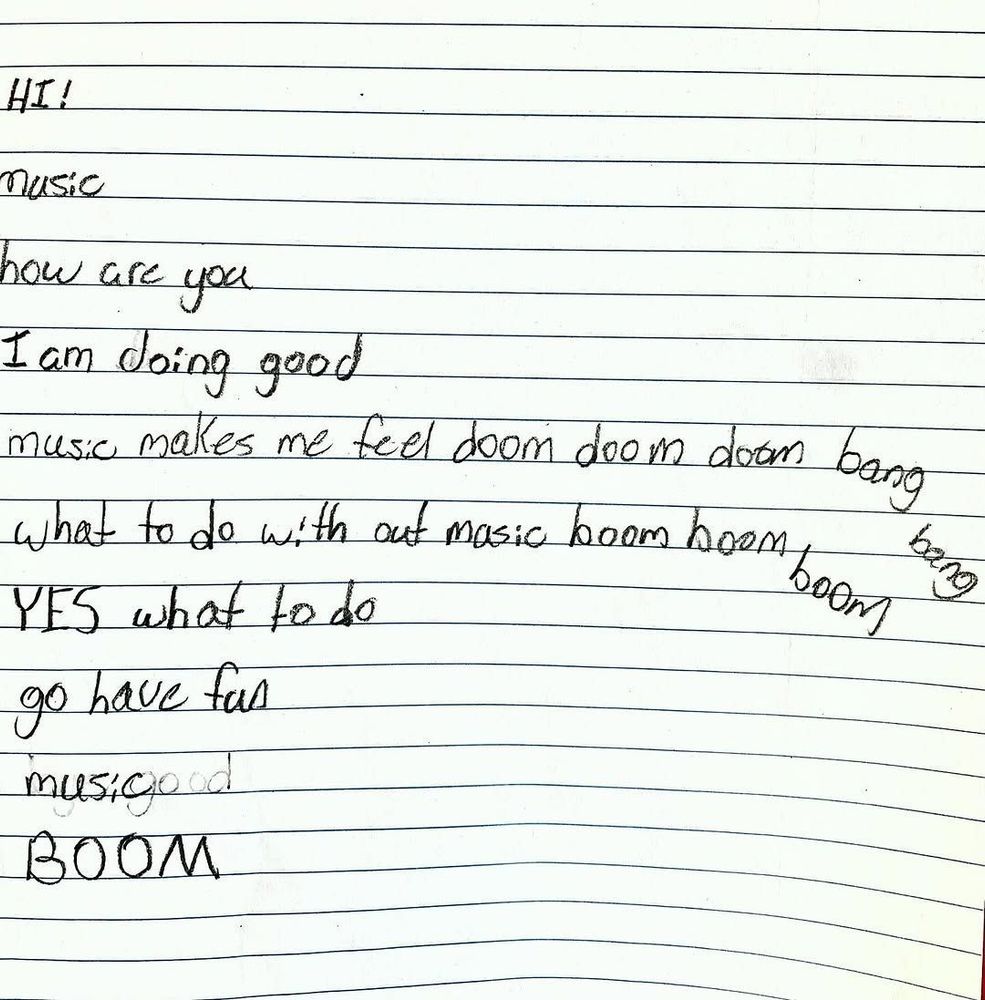 HI!
music
how are you
I am doing good
music makes me feel doom doom doom bang bang
what to do with out music boom boom, boom
YES what to do
go have fun
music good
BOOM